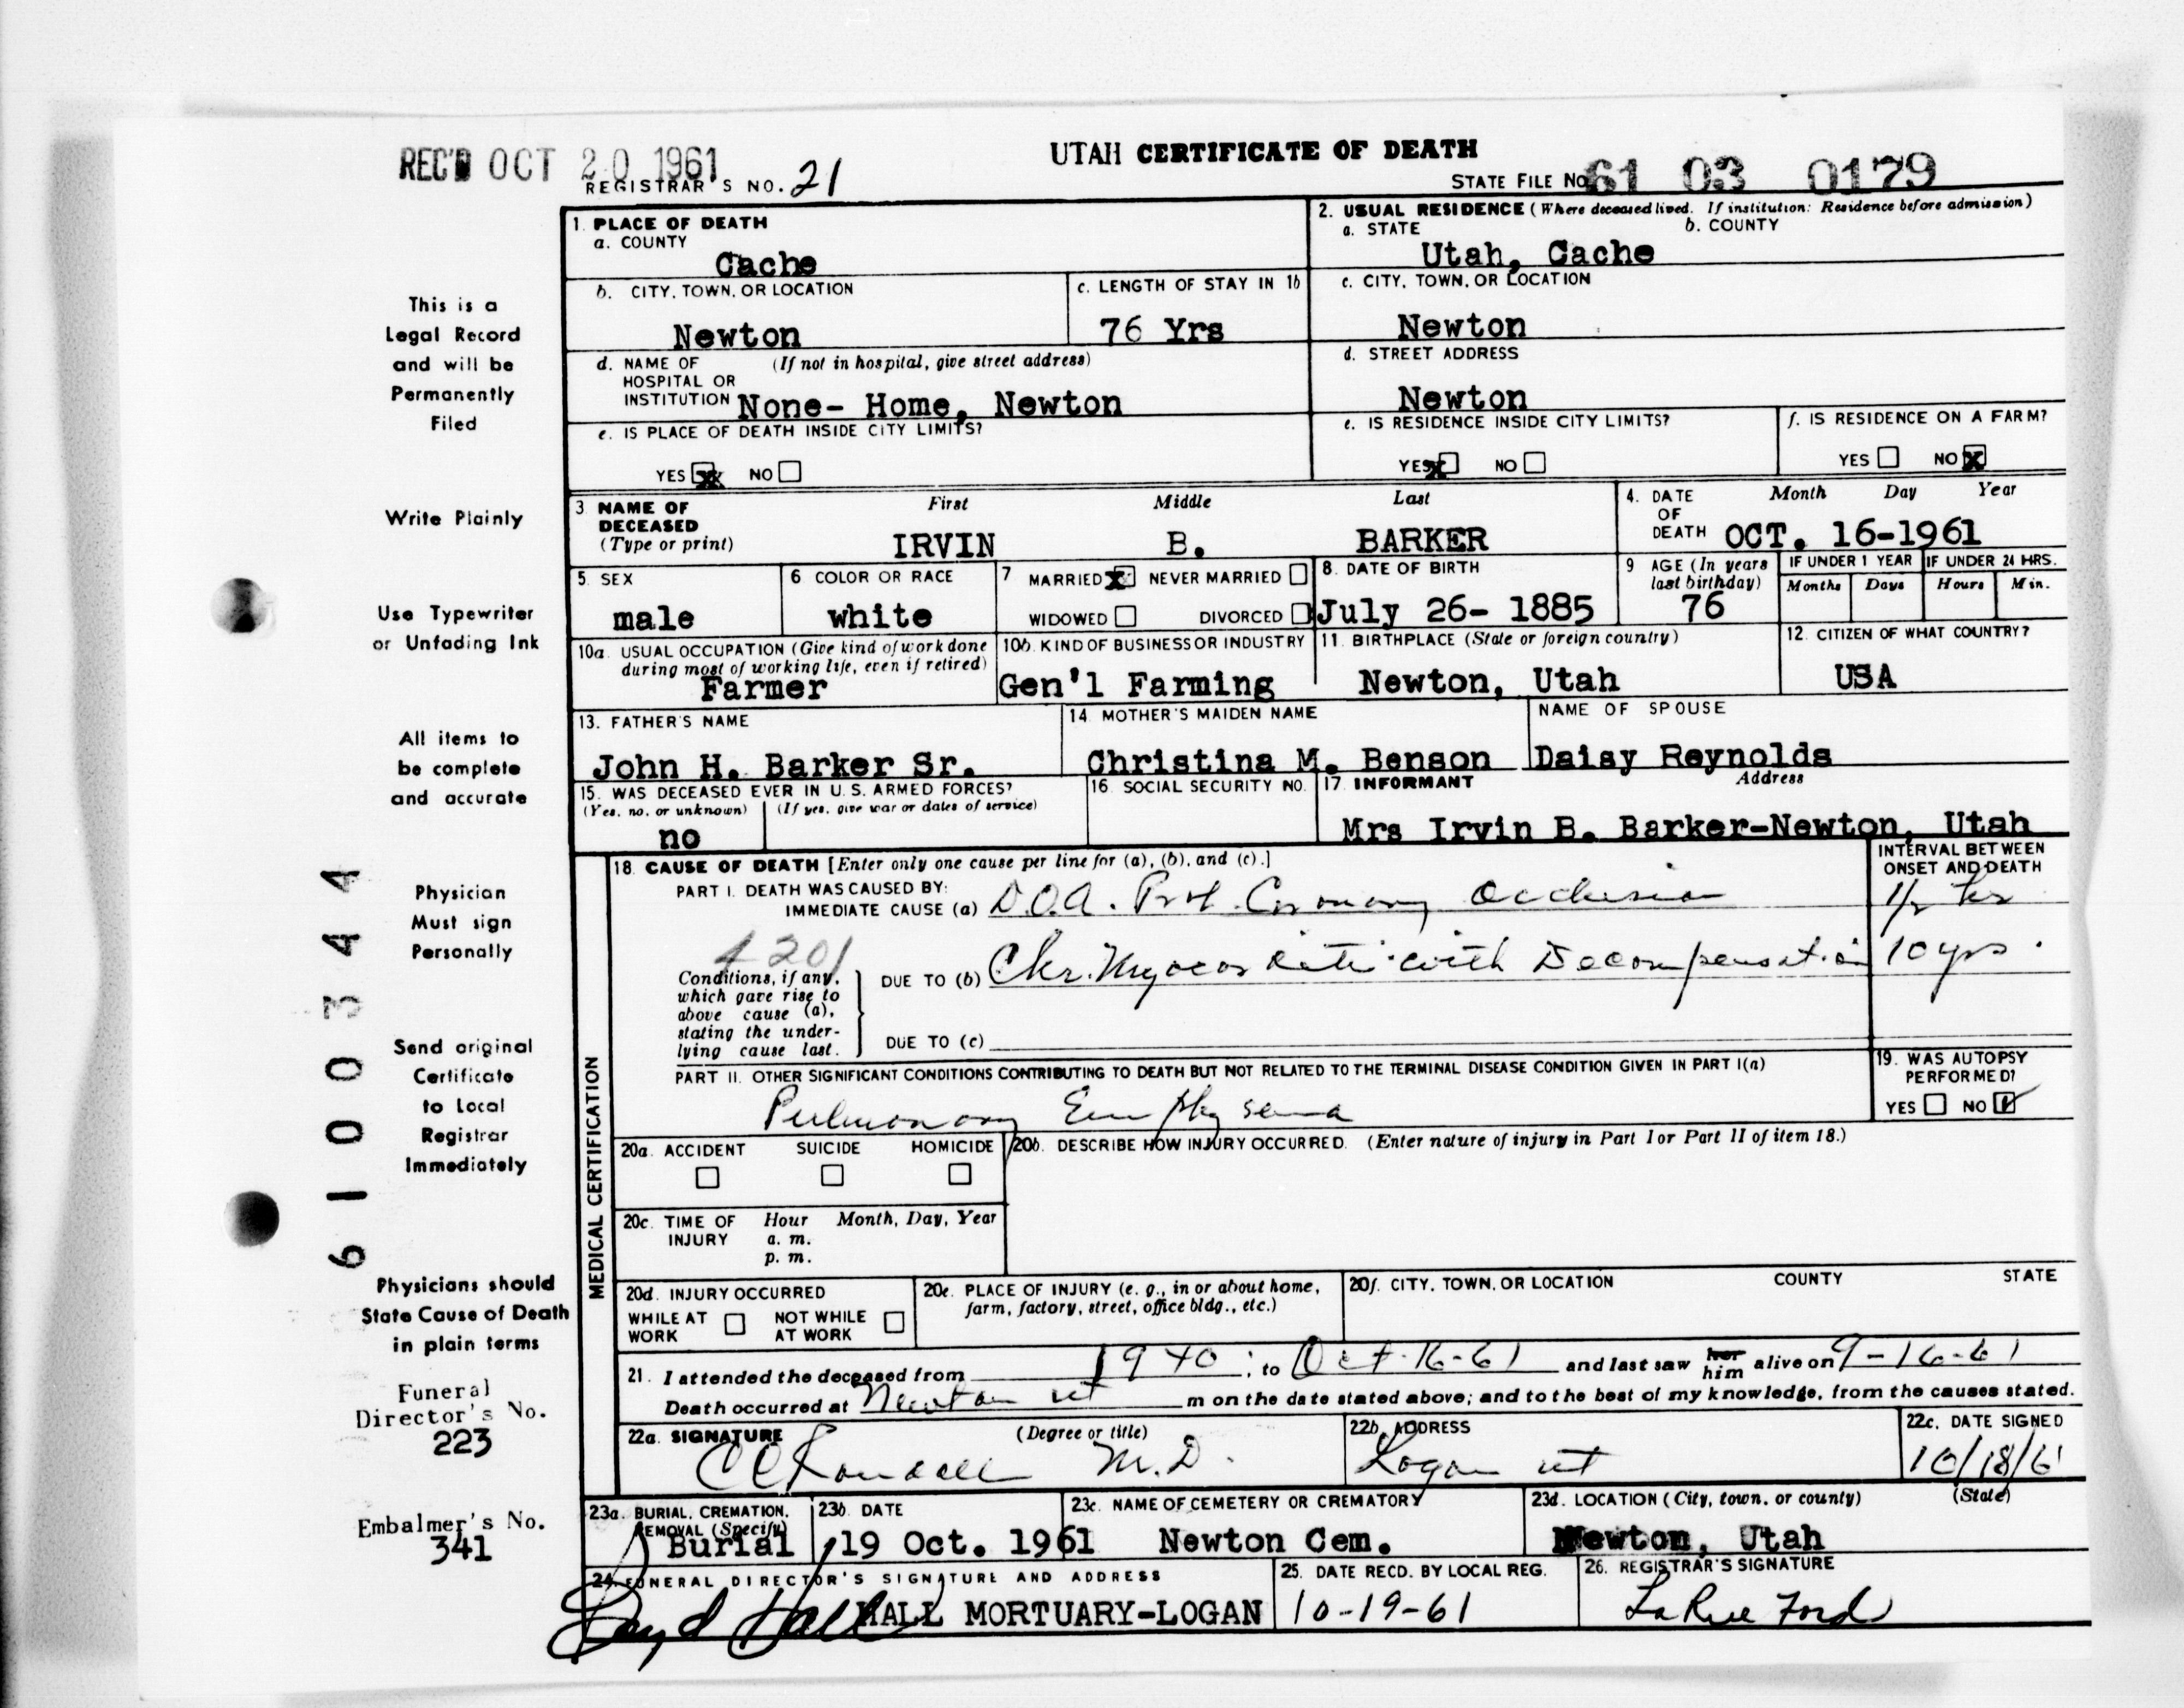 UTAH CERTIFICATE OF DEATH
REC'D OCT 20 1961
REGISTRAR'S NO. 21
STATE FILE No. 61 03 0179
1. PLACE OF DEATH
a. COUNTY
Cache
2. USUAL RESIDENCE (Where deceased lived. If institution: Residence before admission)
a. STATE b. COUNTY
Utah, Cache
b. CITY, TOWN, OR LOCATION
Newton
c. LENGTH OF STAY IN 1b
76 Yrs
c. CITY, TOWN, OR LOCATION
Newton
d. NAME OF (If not in hospital, give street address)
HOSPITAL OR
INSTITUTION None- Home, Newton
d. STREET ADDRESS
Newton
e. IS PLACE OF DEATH INSIDE CITY LIMITS?
YES X NO
e. IS RESIDENCE INSIDE CITY LIMITS?
YES X NO
f. IS RESIDENCE ON A FARM?
YES NO X
3. NAME OF
DECEASED
(Type or print)
First Middle Last
IRVIN B. BARKER
4. DATE Month Day Year
OF
DEATH OCT. 16-1961
5. SEX
male
6 COLOR OR RACE
white
7 MARRIED X NEVER MARRIED
WIDOWED DIVORCED
8. DATE OF BIRTH
July 26- 1885
9 AGE (In years
last birthday)
76
IF UNDER 1 YEAR IF UNDER 24 HRS.
Months Days Hours Min.
10a. USUAL OCCUPATION (Give kind of work done
during most of working life, even if retired)
Farmer
10b. KIND OF BUSINESS OR INDUSTRY
Gen'l Farming
11. BIRTHPLACE (State or foreign country)
Newton, Utah
12. CITIZEN OF WHAT COUNTRY?
USA
13. FATHER'S NAME
John H. Barker Sr.
14. MOTHER'S MAIDEN NAME
Christina M. Benson
NAME OF SPOUSE
Daisy Reynolds
15. WAS DECEASED EVER IN U.S. ARMED FORCES?
(Yes, no, or unknown) (If yes, give war or dates of service)
no
16. SOCIAL SECURITY NO.
17. INFORMANT Address
Mrs Irvin B. Barker-Newton, Utah
18. CAUSE OF DEATH [Enter only one cause per line for (a), (b), and (c).]
INTERVAL BETWEEN
ONSET AND DEATH
PART I. DEATH WAS CAUSED BY:
IMMEDIATE CAUSE (a) D.O.A. Prob. Coronary Occlusion 1/2 hr
4201
Conditions, if any,
which gave rise to
above cause (a),
stating the under-
lying cause last.
DUE TO (b) Chr. Myocarditis with Decompensation 10 yrs.
DUE TO (c)
PART II. OTHER SIGNIFICANT CONDITIONS CONTRIBUTING TO DEATH BUT NOT RELATED TO THE TERMINAL DISEASE CONDITION GIVEN IN PART I(a)
Pulmonary Emphysema
19. WAS AUTOPSY
PERFORMED?
YES NO ✓
MEDICAL CERTIFICATION
20a. ACCIDENT SUICIDE HOMICIDE
20b. DESCRIBE HOW INJURY OCCURRED. (Enter nature of injury in Part I or Part II of item 18.)
20c. TIME OF Hour Month, Day, Year
INJURY a. m.
p. m.
20d. INJURY OCCURRED
WHILE AT NOT WHILE
WORK AT WORK
20e. PLACE OF INJURY (e. g., in or about home,
farm, factory, street, office bldg., etc.)
20f. CITY, TOWN, OR LOCATION COUNTY STATE
21. I attended the deceased from 1940, to Oct-16-61 and last saw her him alive on 9-16-61
Death occurred at Newton ut m on the date stated above; and to the best of my knowledge, from the causes stated.
22a. SIGNATURE (Degree or title)
C C Randall M.D.
22b. ADDRESS
Logan ut
22c. DATE SIGNED
10/18/61
23a. BURIAL, CREMATION,
REMOVAL (Specify)
Burial
23b. DATE
19 Oct. 1961
23c. NAME OF CEMETERY OR CREMATORY
Newton Cem.
23d. LOCATION (City, town, or county) (State)
Newton, Utah
24. FUNERAL DIRECTOR'S SIGNATURE AND ADDRESS
Loyd Hall HALL MORTUARY-LOGAN
25. DATE RECD. BY LOCAL REG.
10-19-61
26. REGISTRAR'S SIGNATURE
LaRue Ford
This is a
Legal Record
and will be
Permanently
Filed
Write Plainly
Use Typewriter
or Unfading Ink
All items to
be complete
and accurate
Physician
Must sign
Personally
Send original
Certificate
to Local
Registrar
Immediately
Physicians should
State Cause of Death
in plain terms
Funeral
Director's No.
223
Embalmer's No.
341
6 1 0 0 3 4 4